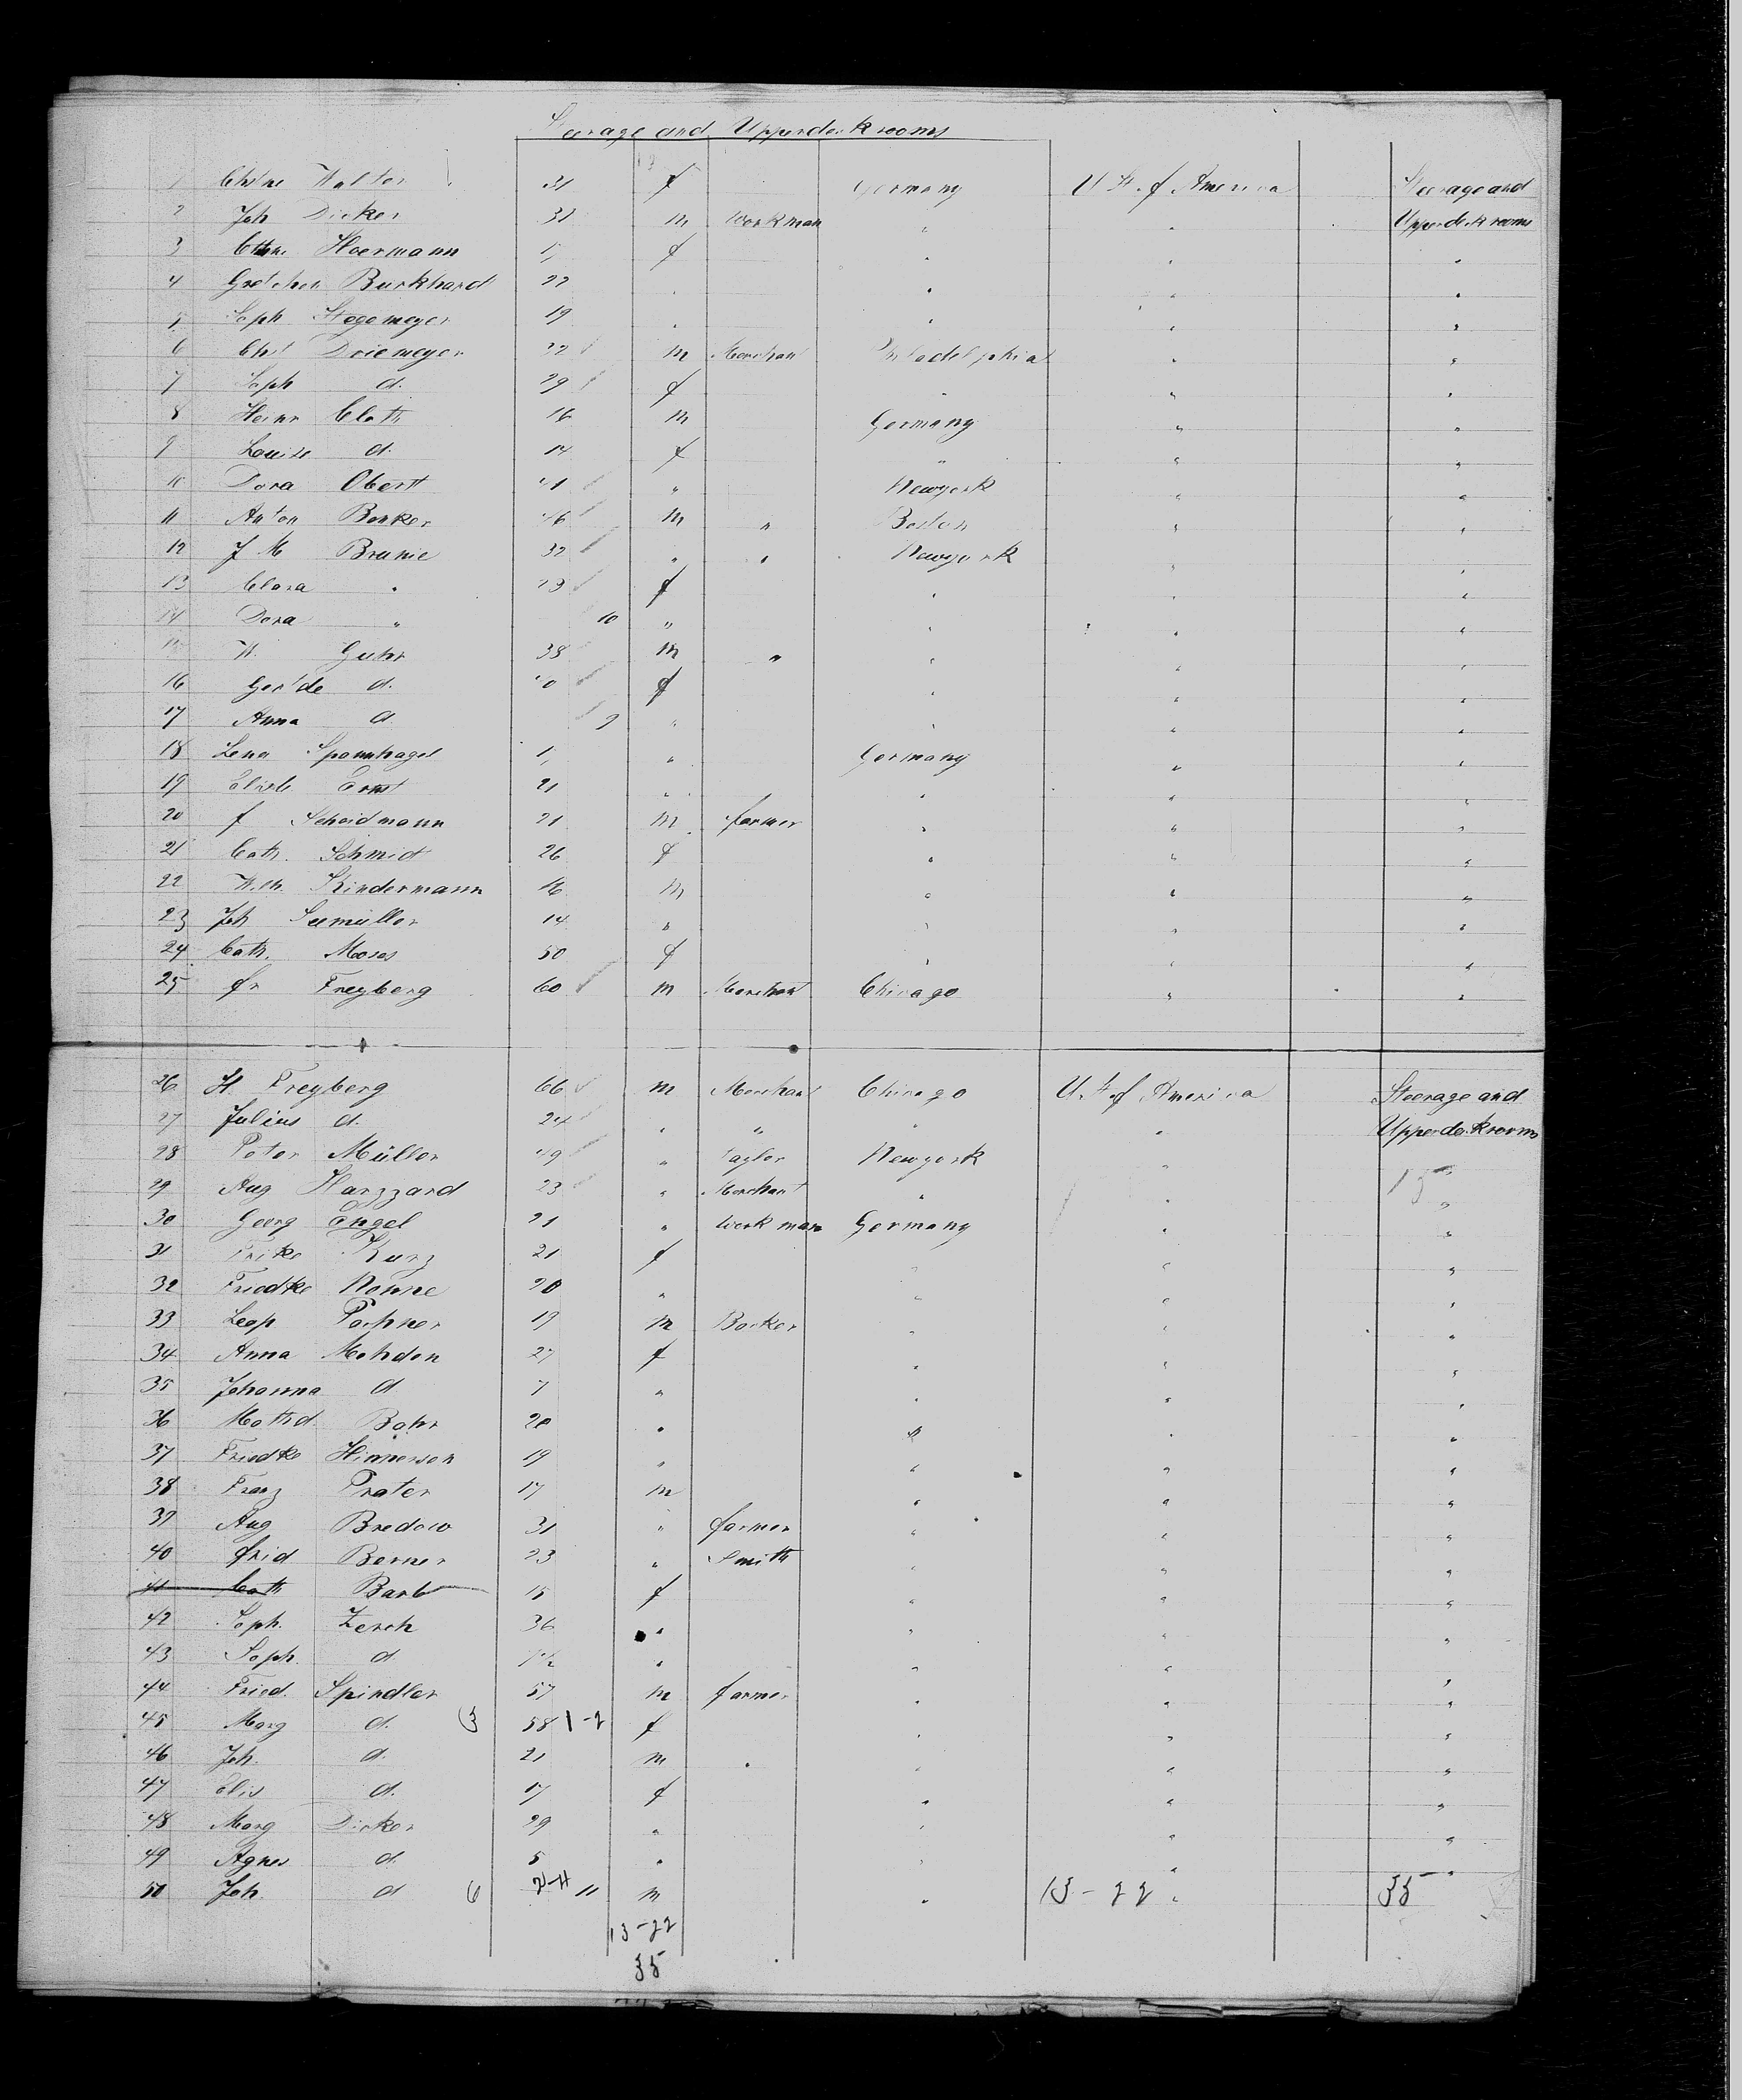 Steerage and Upperdeck rooms
1 Chstne Walter 31 f Germany U St. of America Steerage and
2 Joh Dicker 31 m Workman " " Upperdeck rooms
3 Hoermann f " " "
4 Gretchen Burkhard 22 " " " "
5 Soph Stegemeyer 19 " " " "
6 Chst Driemeyer 32 m Merchant Philadelphia " "
7 Soph d. 29 f " " "
8 Heinr Cloth 16 m Germany " "
9 Louise d. 14 f " " "
10 Dora Obertt 41 " Newyork " "
11 Anton Benker 46 m " Boston " "
12 J M Brunie 32 " " Newyork " "
13 Clara " 23 f " " "
14 Dora " 10 " " " "
15 W. Guhr 38 m " " " "
16 Gertde d. 40 f " " "
17 Anna d. 9 " " " "
18 Lena Spannhagel " Germany " "
19 Elisb Ernst 21 " " " "
20 f Scheidmann 21 m farmer " " "
21 Cath. Schmid 26 f " " "
22 Wilh. Kindermann 16 m " " "
23 Joh Seemüller 14 " " " "
24 Cath. Moses 50 f " " "
25 fr Freyberg 60 m Merchant Chicago " "
26 H. Freyberg 66 m Merchant Chicago U. St. of America Steerage and
27 Julius d. 24 " " " " Upperdeck rooms
28 Peter Müller 49 " Taylor Newyork "
29 Aug Harzzard 23 " Merchant " " "
30 Georg Engel 21 " Workman Germany " "
31 Frike Kurz 21 f " " "
32 Friedke Nonne 20 " " " "
33 Leop Pochner 19 m Backer " " "
34 Anna Mehden 27 f " " "
35 Johanna d 7 " " " "
36 Mathd. Bohr 20 " " " "
37 Friedke Hinnersen 19 " " " "
38 Franz Prater 17 m " " "
39 Aug Bredow 31 " farmer " " "
40 frid Berner 23 " Smith " " "
41 Cath Barb 15 f " " "
42 Soph. Zerch 36 " " " "
43 Soph. d " " " "
44 Fried. Spindler 57 m farmer " " "
45 Marg d. 3 58 1-2 f " " "
46 Joh. d. 21 m " " " "
47 Elis d. 17 f " " "
48 Marg Dicker 29 " " " "
49 Agnes d. 5 " " " "
50 Joh. d 6 11 m " 13-22 " 35
13-22
35